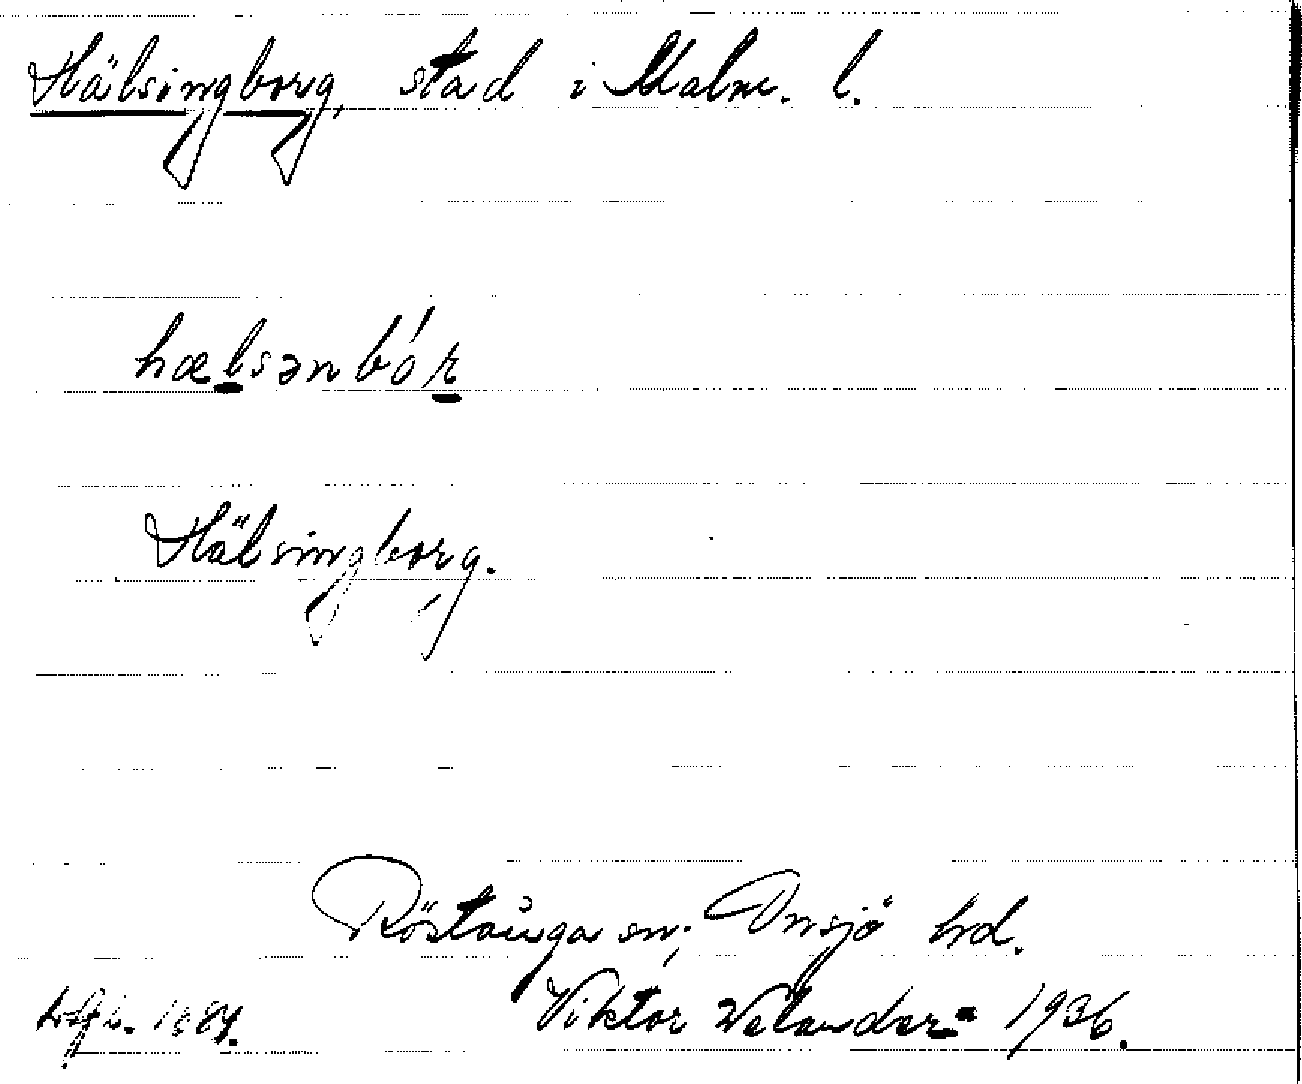 Hälsingborg, stad i Malm. l.
hælsənbór
Hälsingborg.
Röstånga sn; Onsjö hrd.
1884. Viktor Welander 1936.